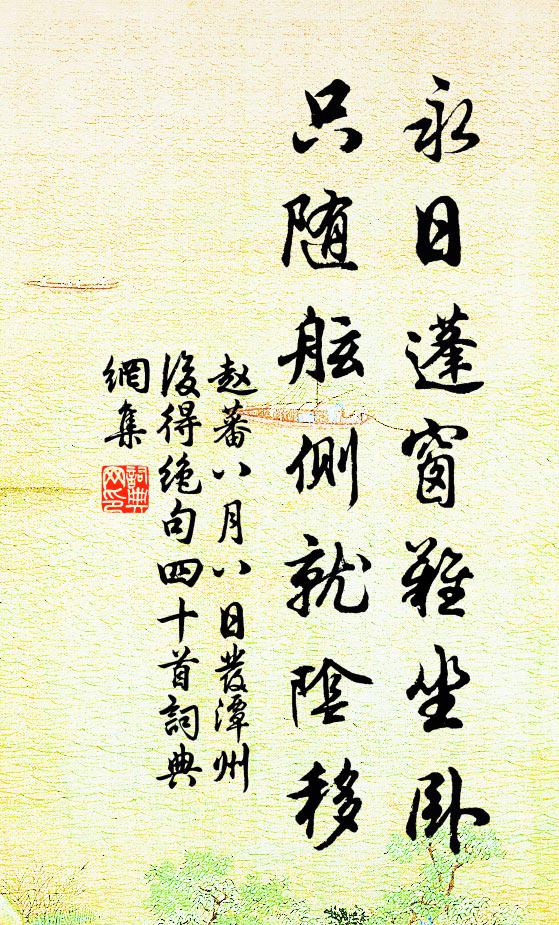 永日蓬窗難坐卧
只随舷側就陰移
赵蕃八月八日發潭州
後得绝句四十首詞典
網集
詞典网印